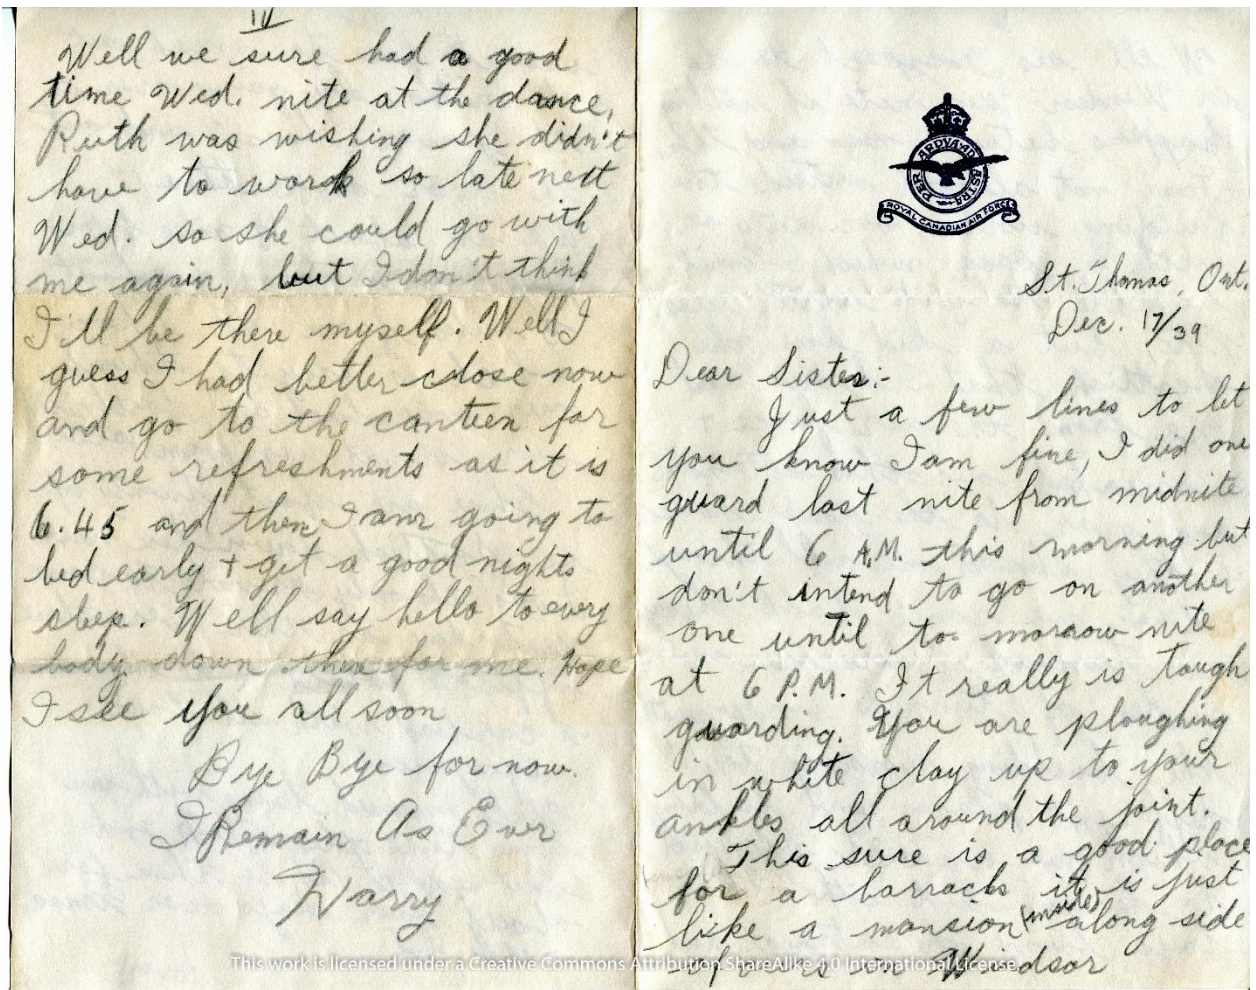 IV
Well we sure had a good
time Wed. nite at the dance,
Ruth was wishing she didn't
have to work so late next
Wed. so she could go with
me again, but I don't think
I'll be there myself. Well I
guess I had better close now
and go to the canteen for
some refreshments as it is
6.45 and then I am going to
bed early + get a good nights
sleep. Well say hello to every
body down there for me. Hope
I see you all soon
Bye Bye for now.
I Remain As Ever
Harry
PER ARDVA AD ASTRA
ROYAL CANADIAN AIR FORCE
St. Thomas, Ont.
Dec. 17/39
Dear Sister:-
Just a few lines to let
you know I am fine, I did one
guard last nite from midnite
until 6 A.M. this morning but
don't intend to go on another
one until to-morrow nite
at 6 P.M. It really is tough
guarding. You are ploughing
in white clay up to your
ankles all around the joint.
This sure is a good place
for a barracks it is just
like a mansion (inside) along side
of ours in Windsor
This work is licensed under a Creative Commons Attribution ShareAlike 4.0 International License